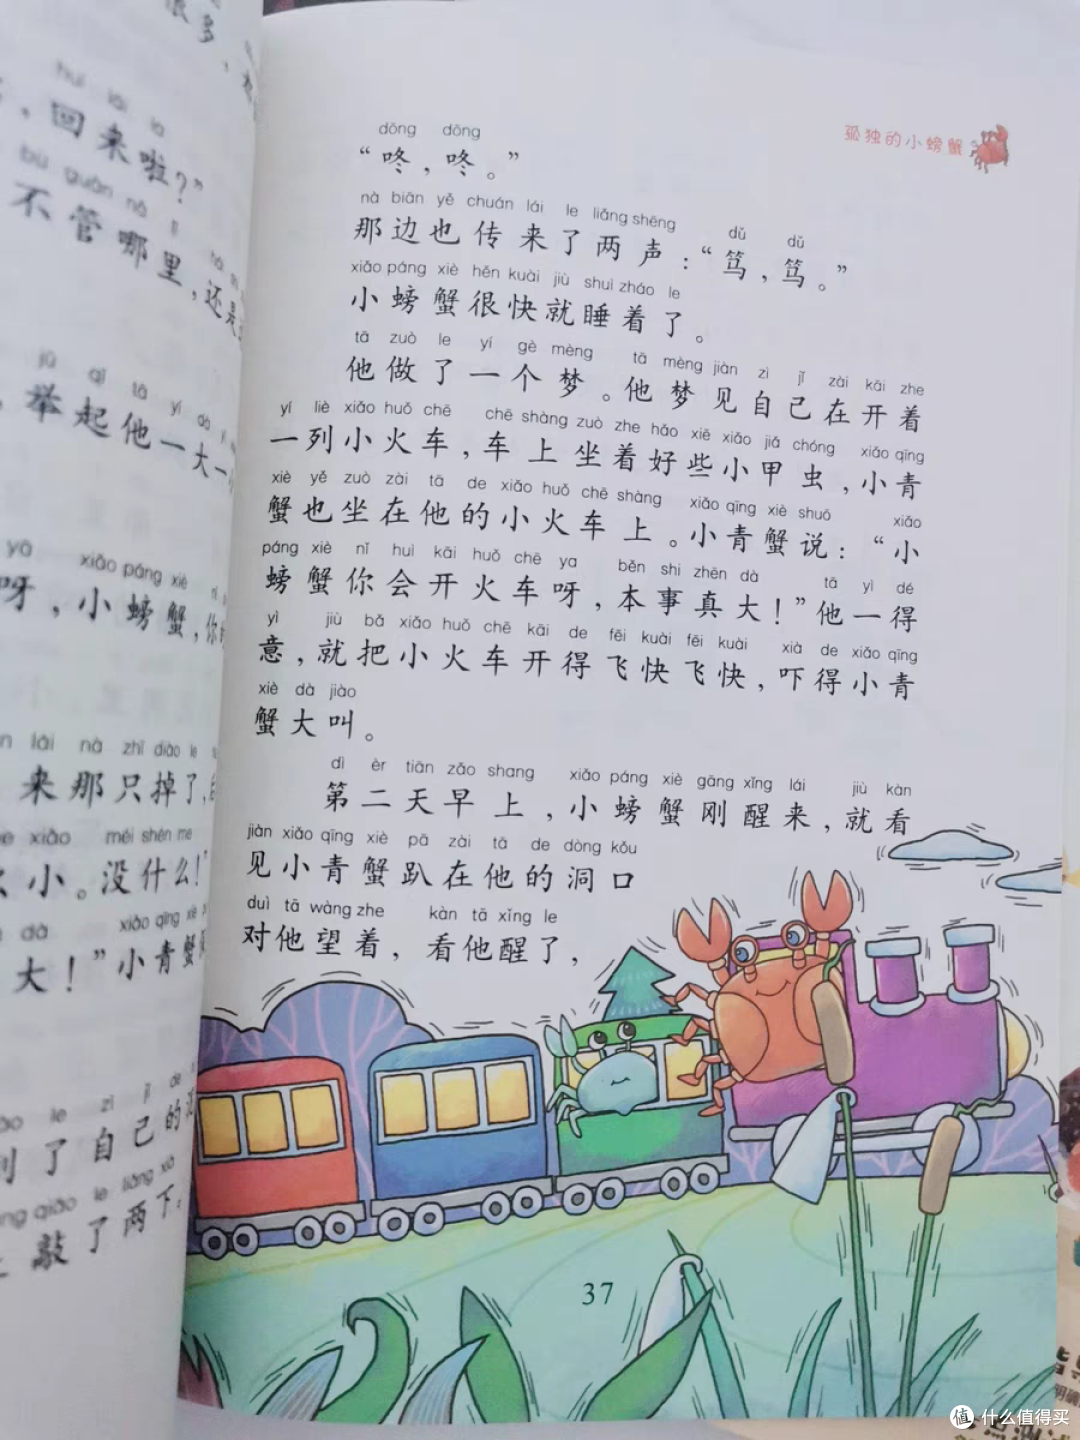 很多，
huí lái la
，回来啦？”
bù guǎn nǎ lǐ
不管哪里，还是
jǔ qǐ tā yí dà
，举起他一大一
yā xiǎo páng xiè nǐ
呀，小螃蟹，你
lái nà zhī diào le
来那只掉了，
xiǎo méi shén me
小。没什么！”
dà xiǎo qīng xiè
大！”小青蟹
le zì jǐ de
到了自己的
qiāo le liǎng xià
敲了两下：
孤独的小螃蟹
dōng dōng
“咚，咚。”
nà biān yě chuán lái le liǎng shēng dǔ dǔ
那边也传来了两声：“笃，笃。”
xiǎo páng xiè hěn kuài jiù shuì zháo le
小螃蟹很快就睡着了。
tā zuò le yí gè mèng tā mèng jiàn zì jǐ zài kāi zhe
他做了一个梦。他梦见自己在开着
yí liè xiǎo huǒ chē chē shàng zuò zhe hǎo xiē xiǎo jiǎ chóng xiǎo qīng
一列小火车，车上坐着好些小甲虫，小青
xiè yě zuò zài tā de xiǎo huǒ chē shàng xiǎo qīng xiè shuō xiǎo
蟹也坐在他的小火车上。小青蟹说：“小
páng xiè nǐ huì kāi huǒ chē ya běn shi zhēn dà tā yì dé
螃蟹你会开火车呀，本事真大！”他一得
yì jiù bǎ xiǎo huǒ chē kāi de fēi kuài fēi kuài xià de xiǎo qīng
意，就把小火车开得飞快飞快，吓得小青
xiè dà jiào
蟹大叫。
dì èr tiān zǎo shang xiǎo páng xiè gāng xǐng lái jiù kàn
第二天早上，小螃蟹刚醒来，就看
jiàn xiǎo qīng xiè pā zài tā de dòng kǒu
见小青蟹趴在他的洞口
duì tā wàng zhe kàn tā xǐng le
对他望着，看他醒了，
37
值 什么值得买